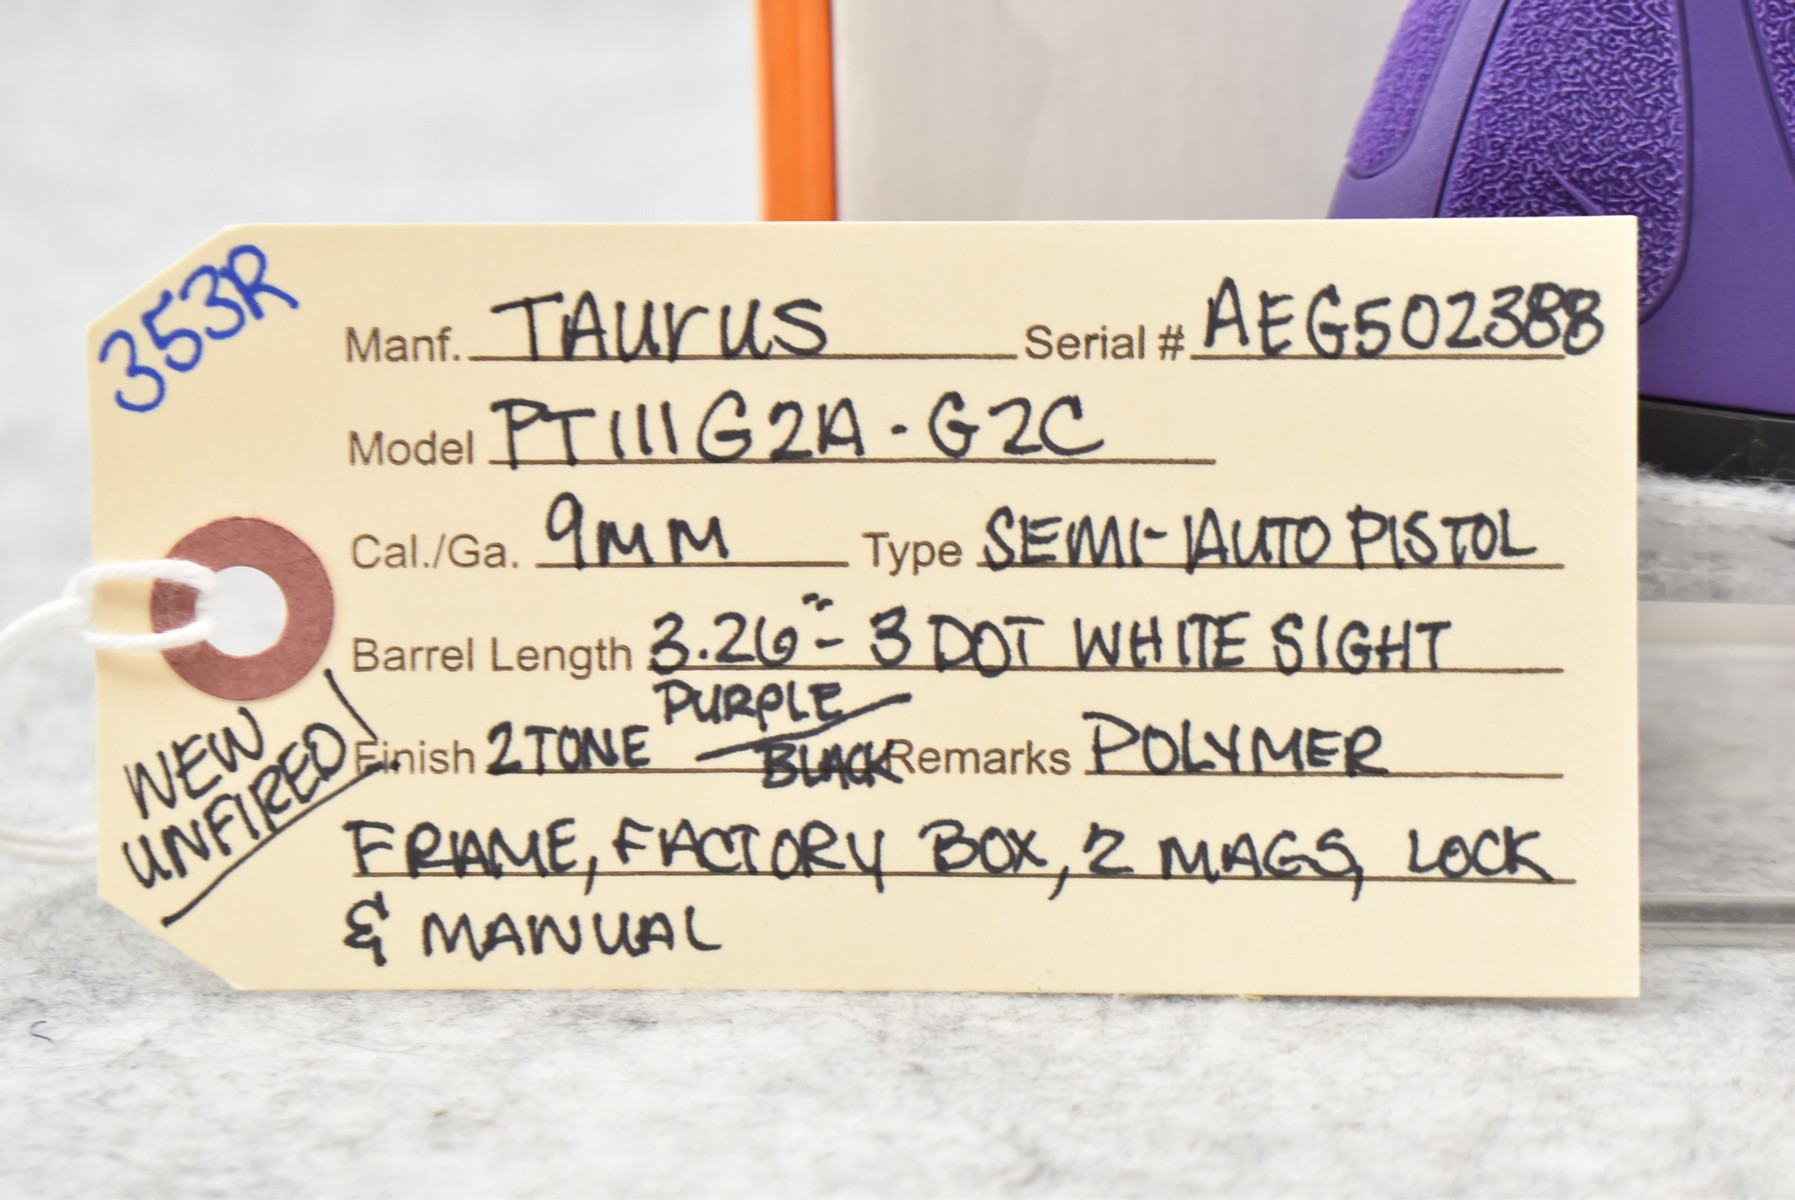 353R
Manf. TAURUS Serial # AEG502388
Model PT111G2A - G2C
Cal./Ga. 9MM Type SEMI-AUTO PISTOL
Barrel Length 3.26" - 3 DOT WHITE SIGHT
Finish 2 TONE PURPLE/BLACK Remarks POLYMER
FRAME, FACTORY BOX, 2 MAGS, LOCK
& MANUAL
NEW
UNFIRED!